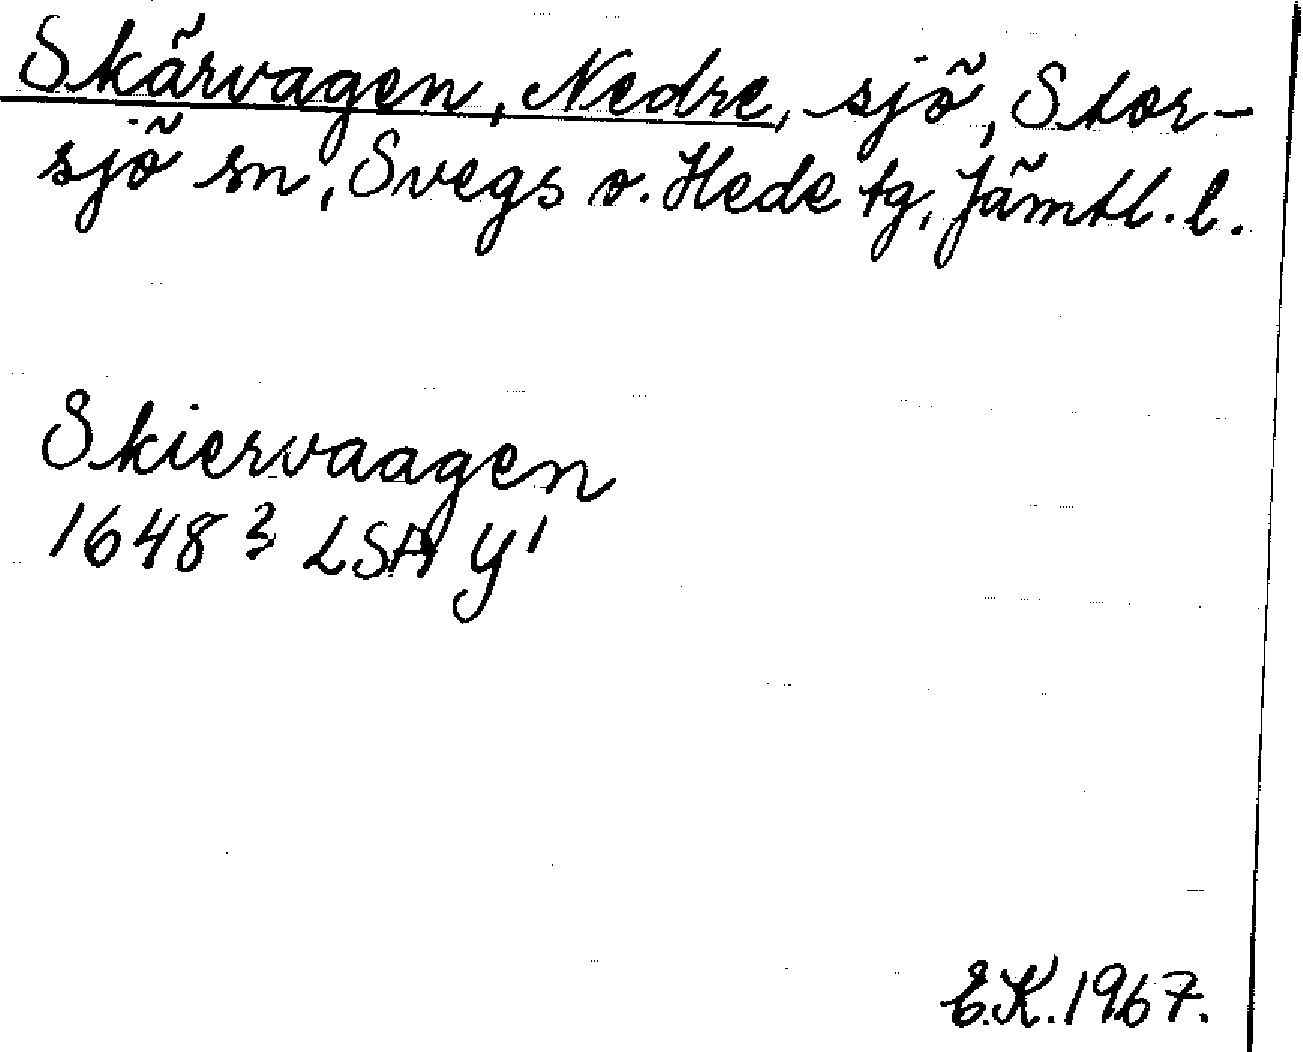 Skärvagen, Nedre, sjö, Stor-
sjö sn, Svegs o. Hede tg, Jämtl. l.
Skiervaagen
1648 3/2 LSA Y1
E.K. 1967.